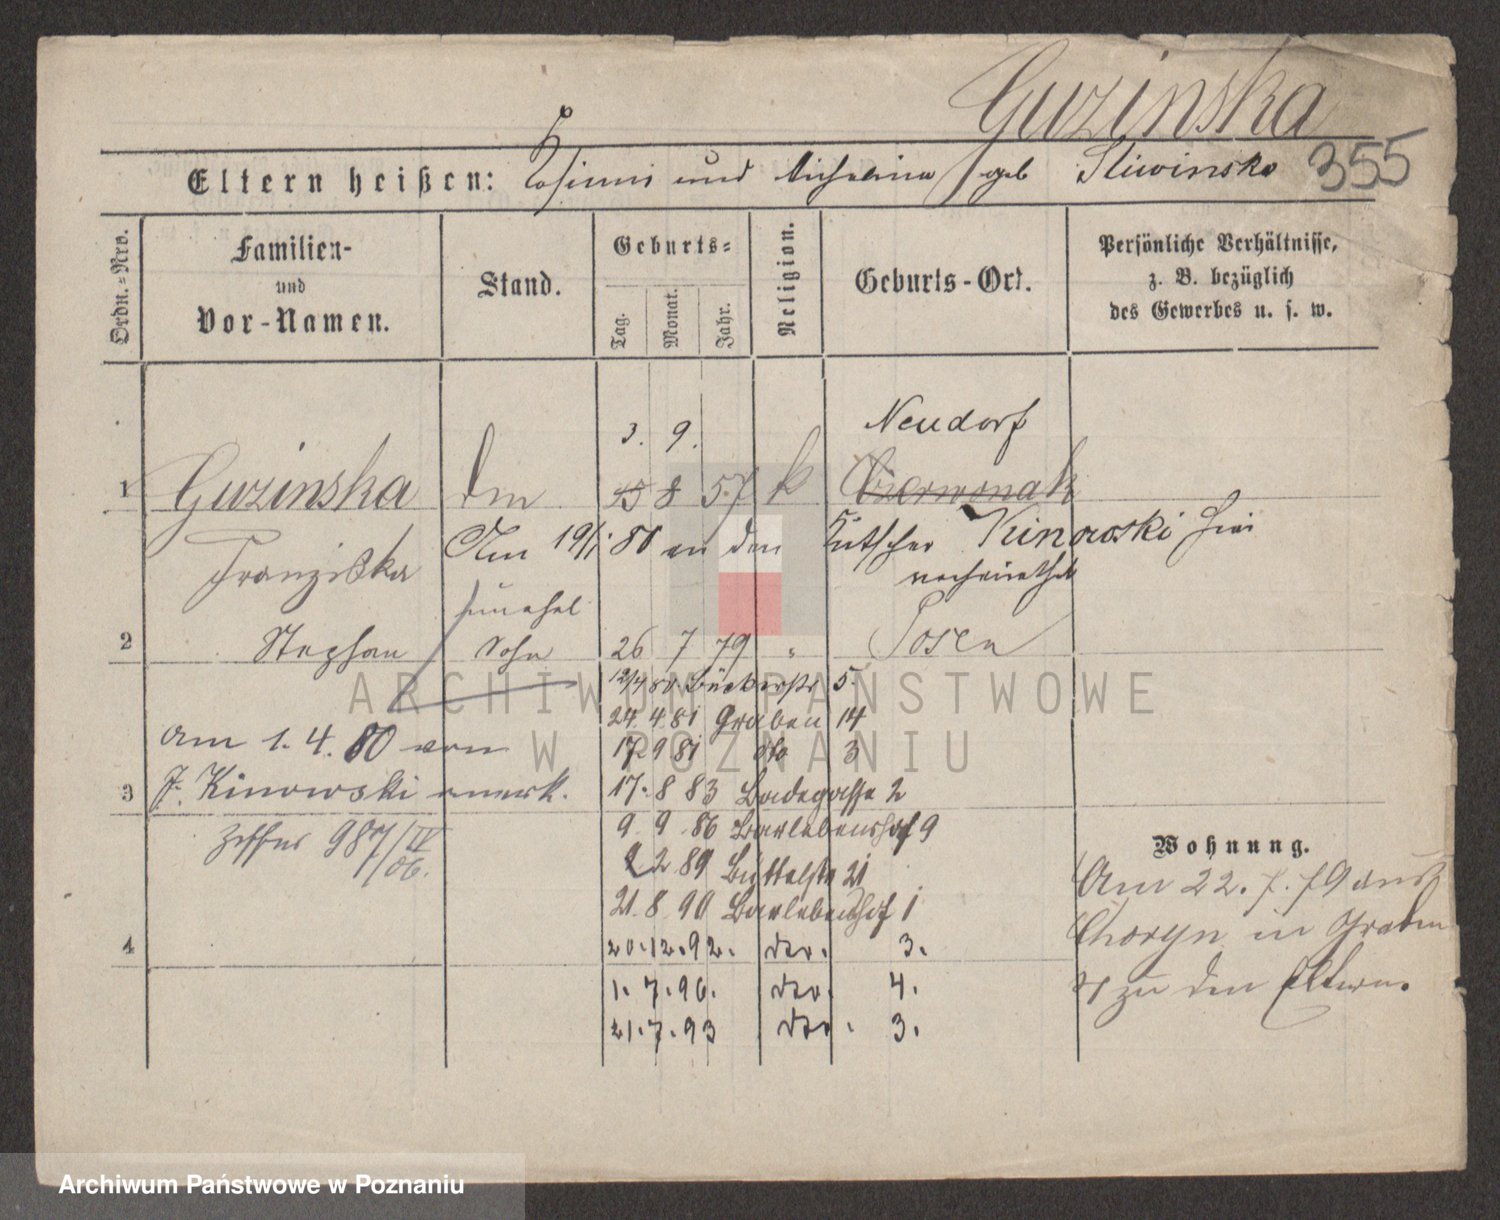 Guzinska
355
Eltern heißen: Casimir und Michalina geb Sliwinska
Ordn.-Nro.
Familien-
und
Vor-Namen.
Stand.
Geburts-
Tag.
Monat.
Jahr.
Religion.
Geburts-Ort.
Persönliche Verhältnisse,
z. B. bezüglich
des Gewerbes u. s. w.
Neudorf
3. 9.
1 Guzinska 8 57 k Czerwonak
Franziska
Am 19/1 80 an den Kutscher Kinowski hier
verheirathet
unehel
2 Stephan Sohn 26 7 79 " Posen
12/4 80 Bäckerstr 5.
24. 4. 81 Graben 14
17 9 81 dto 3
Am 1. 4. 80 von
3 F. Kinowski anerk.
17. 8 83 Badegasse 2
Ziffer 987/IV
/06.
9. 9. 86 Barlebenshof 9
2 2 89 Büttelstr 21
21. 8 90 Barlebenshof 1
4
20. 12. 92. 3.
1. 7. 96. 4.
21. 7. 93 3.
Wohnung.
Am 22. 7. 79 aus
Choryn in Graben
zu den Eltern.
ARCHIWUM PAŃSTWOWE
W POZNANIU
Archiwum Państwowe w Poznaniu